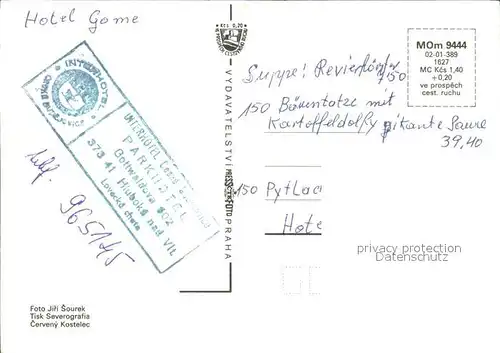 Hotel Game
Kčs 0,20
MOm 9444
02-01-389
1627
MC Kčs 1,40
+0,20
ve prospěch
cest. ruchu
INTERHOTEL
INTERHOTEL České
PARKHOTEL
Gottwaldova 602
373 41 Hluboká nad Vlt
Lovecká chata
telef.
965145
VYDAVATELSTVÍ PRESSFOTO PRAHA
Suppe! 7,50
150 Bärentatze mit
Kartoffeldolly pikante Sauce
39,40
150 Pytlac
Hote
privacy protection
Datenschutz
Foto Jiří Šourek
Tisk Severografia
Červený Kostelec